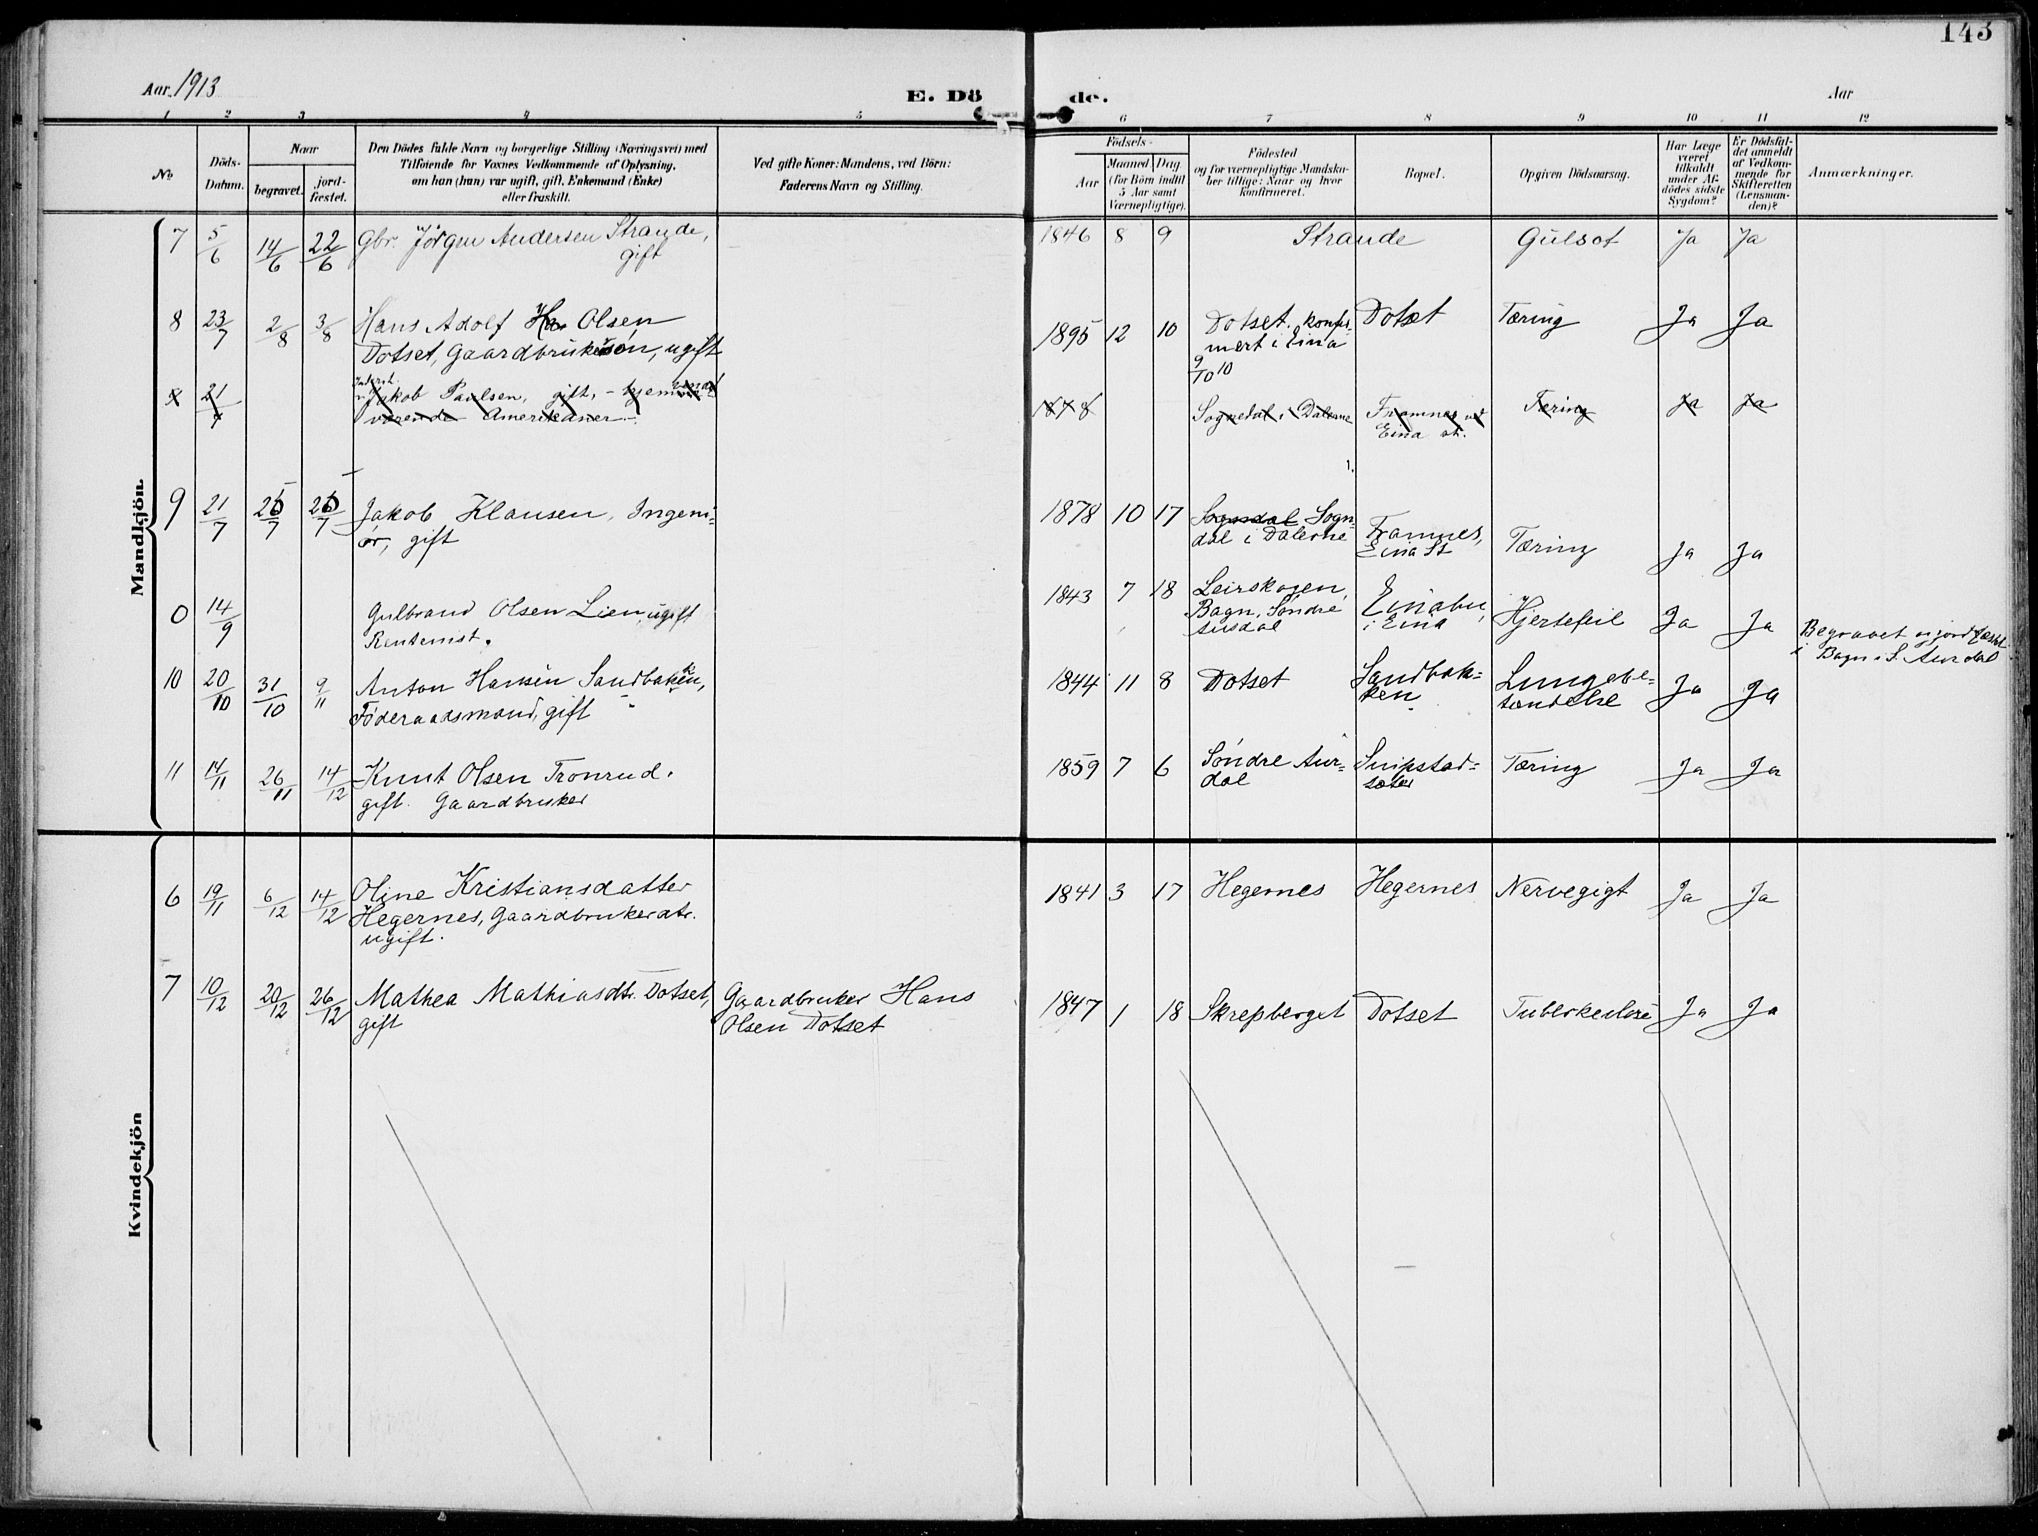 143
Aar 1913
E. Dö
de.
Aar
1 2 3 4 5 6 7 8 9 10 11 12
No
Döds-
Datum.
Naar
begravet.
jord-
fæstet.
Den Dödes fulde Navn og borgerlige Stilling (Næringsvei) med
Tilföiende for Voxnes Vedkommende af Oplysning,
om han (hun) var ugift, gift, Enkemand (Enke)
eller fraskilt.
Ved gifte Koner: Mandens, ved Börn:
Faderens Navn og Stilling.
Födsels-
Aar
Maaned
Dag
(for Börn indtil
5 Aar samt
Værnepligtige).
Födested
og for værnepligtige Mandska-
ber tillige: Naar og hvor
konfirmeret.
Bopæl.
Opgiven Dödsaarsag.
Har Læge
været
tilkaldt
under Af-
dödes sidste
Sygdom?
Er Dödsfal-
det anmeldt
af Vedkom-
mende for
Skifteretten
(Lensman-
den)?
Anmærkninger.
Mandkjön.
7 5/6 14/6 22/6 Gbr. Jörgen Andersen Strande, 1846 8 9 Strande Gulsot Ja Ja
gift
8 23/7 2/8 3/8 Hans Adolf Olsen 1895 12 10 Dotset. konfir- Dotset Tæring Ja Ja
Dotset, Gaardbrukersön, ugift mert i Eina
9/10 10
21/7 Jakob Paulsen, gift, - hjemme 1878 Sogndal i Dalerne Framnes ved Tæring Ja Ja
værende Amerikaner - Eina st.
9 21/7 Jakob Klausen, Ingeni- 1878 10 17 Sogndal Sogn- Framnes, Tæring Ja Ja
ör, gift dal i Dalerne Eina St
0 14/9 Gulbrand Olsen Lien, ugift 1843 7 18 Leirskogen, Einabu, Hjertefeil Ja Ja
Rentenist. Bagn, Söndre i Eina
Begravet og jordfæstet
i Bagn i S. Aurdal
10 20/10 31/10 9/11 Anton Hansen Sandbakken, 1844 11 8 Dotset Sandbak- Lungebe- Ja Ja
Föderaadsmand, gift ken tændelse
11 14/11 26/11 14/12 Knut Olsen Tronrud. 1859 7 6 Söndre Aur- Snipstad- Tæring Ja Ja
gift. Gaardbruker dal sæter
Kvindekjön
6 19/11 6/12 14/12 Oline Kristiansdatter 1841 3 17 Hegernes Hegernes Nervegigt Ja Ja
Hegernes, Gaardbrukerdtr.
ugift.
7 10/12 20/12 26/12 Mathea Mathiasdtr. Dotset, Gaardbruker Hans 1847 1 18 Skrepberget Dotset Tuberkulose Ja Ja
gift Olsen Dotset